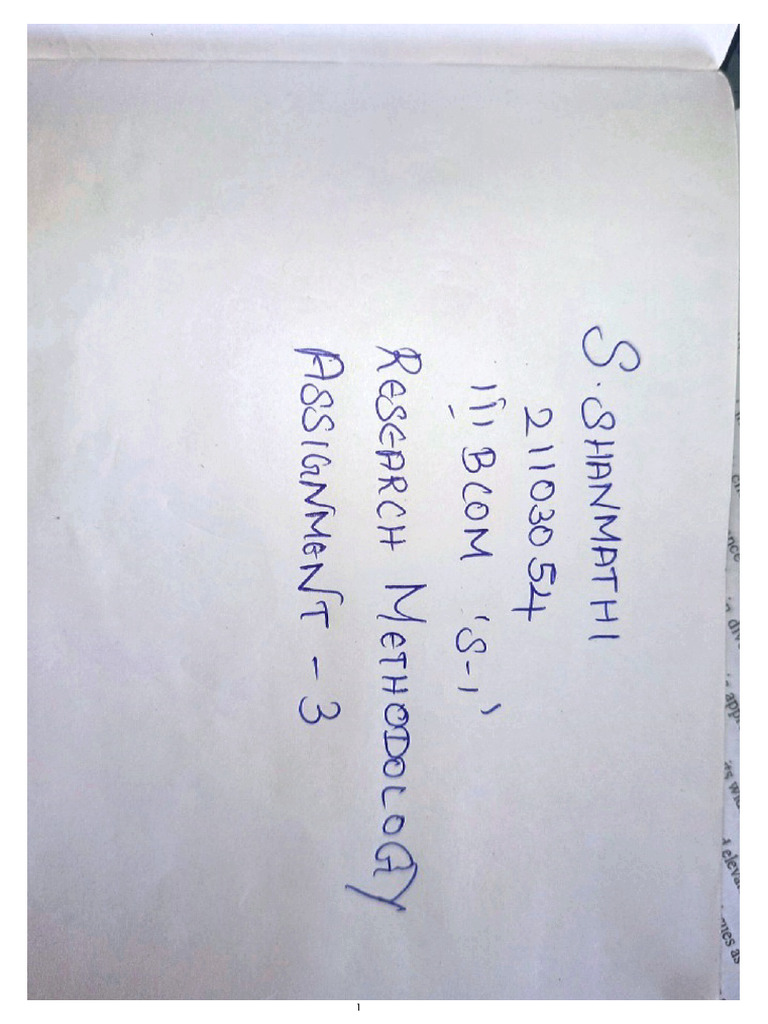 S. SHANMATHI
21103054
III BCOM 'S-1'
RESEARCH METHODOLOGY
ASSIGNMENT - 3
1